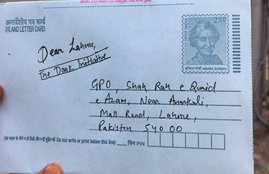 अन्तर्देशीय पत्र कार्ड
INLAND LETTER CARD
250
इंदिरा गांधी INDIRA GANDHI
Dear Lahore,
The Daak Initiative
GPO, Shah Rah e Quaid
e Azam, Near Anarkali,
Mall Road, Lahore,
Pakistan 54000
पिन PIN